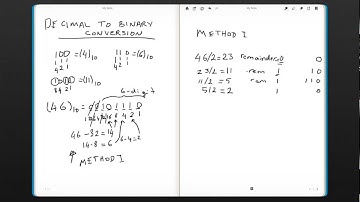 DECIMAL TO BINARY
CONVERSION
100 =(4)10
421
110 =(6)10
421
1011 =(11)10
8421
6-digit
(46)10 = 101110
32 16 8 4 2 1
46-32=14
14-8=6
6-4=2
METHOD I
METHOD I
46/2=23 remainder 0 0
23/2=11 rem 1 10
11/2=5 rem 1 110
5/2=2 1 0